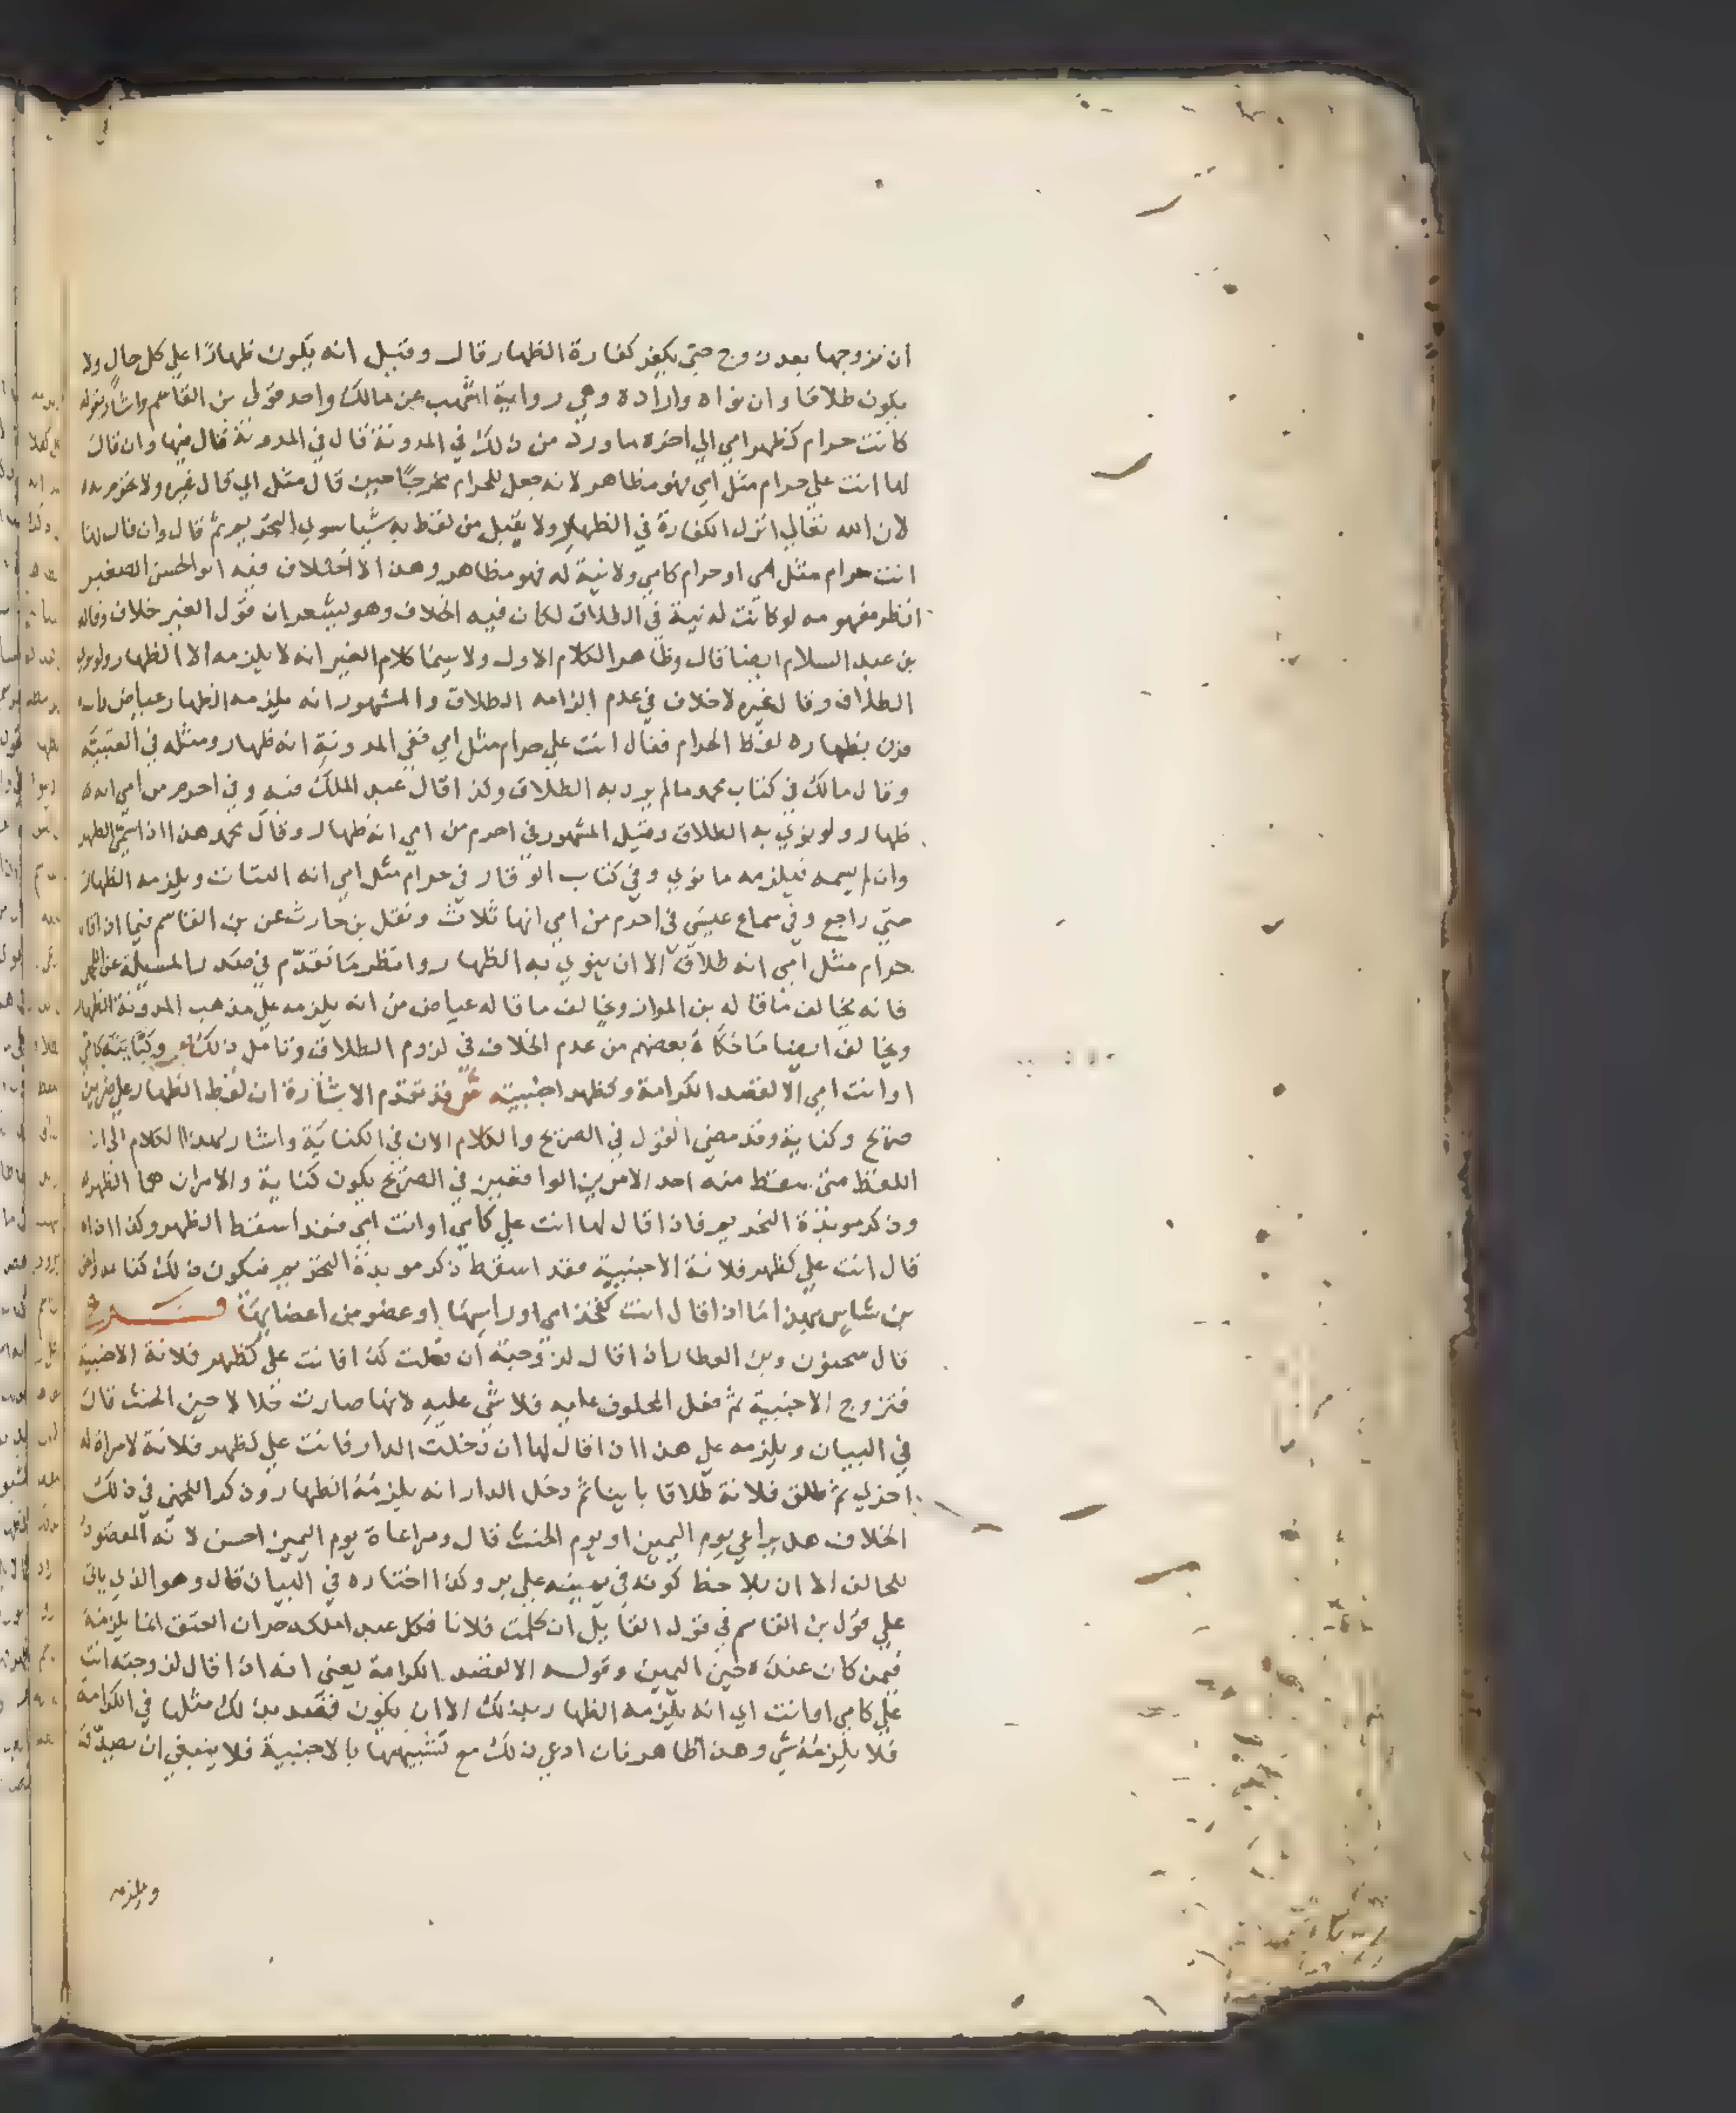 ان تزوجها بعد زوج حتى يكفر كفارة الظهار قال وقيل انه يكون ظهارًا علي كل حال ولا
يكون طلاقا وان نواه واراده وهي رواية اشهب عن مالك واحد قولى بن القاسم واشار بقوله
كانت حرام كظهر امي الي اخره ما ورد من ذلك في المدونة قال في المدونة قال فيها وان قال
لها انت علي حرام مثل امي فهو مظاهر لانه جعل للحرام مخرجًا حين قال مثل امي قال غيره ولا تحرم به
لان الله تعالي انزل الكفارة في الظهار ولا يقبل من لفظ به شيا سوي التحريم ثم قال وان قال لها
انت حرام مثل امي او حرام كامي ولا نية له فهو مظاهر وهذا لا اختلاف فيه ابو الحسن الصغير
انظر مفهومه لو كانت له نية في الطلاق لكان فيه الخلاف وهو يشعر ان قول الغير خلاف وقاله
بن عبد السلام ايضا قال وظاهر الكلام الاول ولا سيما كلام الغير انه لا يلزمه الا الظهار ولو نوي
الطلاق وقال غيره لا خلاف في عدم الزامه الطلاق والمشهور انه يلزمه الظهار عياض وان
قرن بظهاره لفظ الحرام فقال انت علي حرام مثل امي ففي المدونة انه ظهار ومثله في العتبية
وقال مالك في كتاب محمد ما لم يرد به الطلاق وكذا قال عبد الملك فيه وفي احرم من امي انه
ظهار ولو نوي به الطلاق وقيل المشهور في احرم من امي انه ظهار وقال محمد هذا اذا سمى الظهر
وان لم يسمه فيلزمه ما نوي وفي كتاب الوقار في حرام مثل امي انه البتات ويلزمه الظهار
متي راجع وفي سماع عيسي في احرم من امي انها ثلاث ونقل بن حارث عن بن القاسم فيما اذا قال
حرام مثل امي انه طلاق الا ان ينوي به الظهار وانظر ما تقدم في صدر المسيلة عن
فانه يخالف ما قاله بن المواز ويخالف ما قاله عياض من انه يلزمه علي مذهب المدونة الظهار
ويخالف ايضا ما حكاه بعضهم من عدم الخلاف في لزوم الطلاق وتامل ذلك وكنايته كامي
او انت امي الا لقصد الكرامة وكظهر اجنبية ش قد تقدم الاشارة ان لفظ الظهار علي ضربين
صريح وكناية وقد مضي القول في الصريح والكلام الان في الكناية واشار بهذا الكلام الي ان
اللفظ متي سقط منه احد الامرين الواقعين في الصريح يكون كناية والامران هما الظهر
وذكر موبدة التحريم فاذا قال لها انت علي كامي او انت امي فقد اسقط الظهر وكذا اذا
قال انت علي كظهر فلانة الاجنبية فقد اسقط ذكر موبدة التحريم فيكون ذلك كناية
بن شاس بهذا ما اذا قال انت كفخذ امي او راسها او عضو من اعضايها
قال سحنون وبن العطار اذا قال لزوجته ان فعلت كذا فانت علي كظهر فلانة الاجنبية
فتزوج الاجنبية ثم فعل المحلوف عليه فلا شي عليه لانها صارت حلالا حين الحنث قال
في البيان ويلزمه علي هذا اذا قال لها ان دخلت الدار فانت علي كظهر فلانة لامراة له
اخري ثم طلق فلانة طلاقا باينا ثم دخل الدار انه يلزمه الظهار وذكر اللخمي في ذلك
الخلاف هل يراعي يوم اليمين او يوم الحنث قال ومراعاة يوم اليمين احسن لانه المقصود
للحالف الا ان يلاحظ كونه في يمينه علي بر وكذا اختاره في البيان قال وهو الذي ياتي
علي قول بن القاسم في قول القايل ان كلمت فلانا فكل عبد املكه حر ان العتق انما يلزمه
فيمن كان عنده حين اليمين وقوله الا لقصد الكرامة يعني انه اذا قال لزوجته انت
علي كامي او انت امي انه يلزمه الظهار بذلك الا ان يكون قصد بذلك مثلها في الكرامة
فلا يلزمه شي وهذا ظاهر فان ادعي ذلك مع تشبيهها بالاجنبية فلا ينبغي ان
ويلزمه